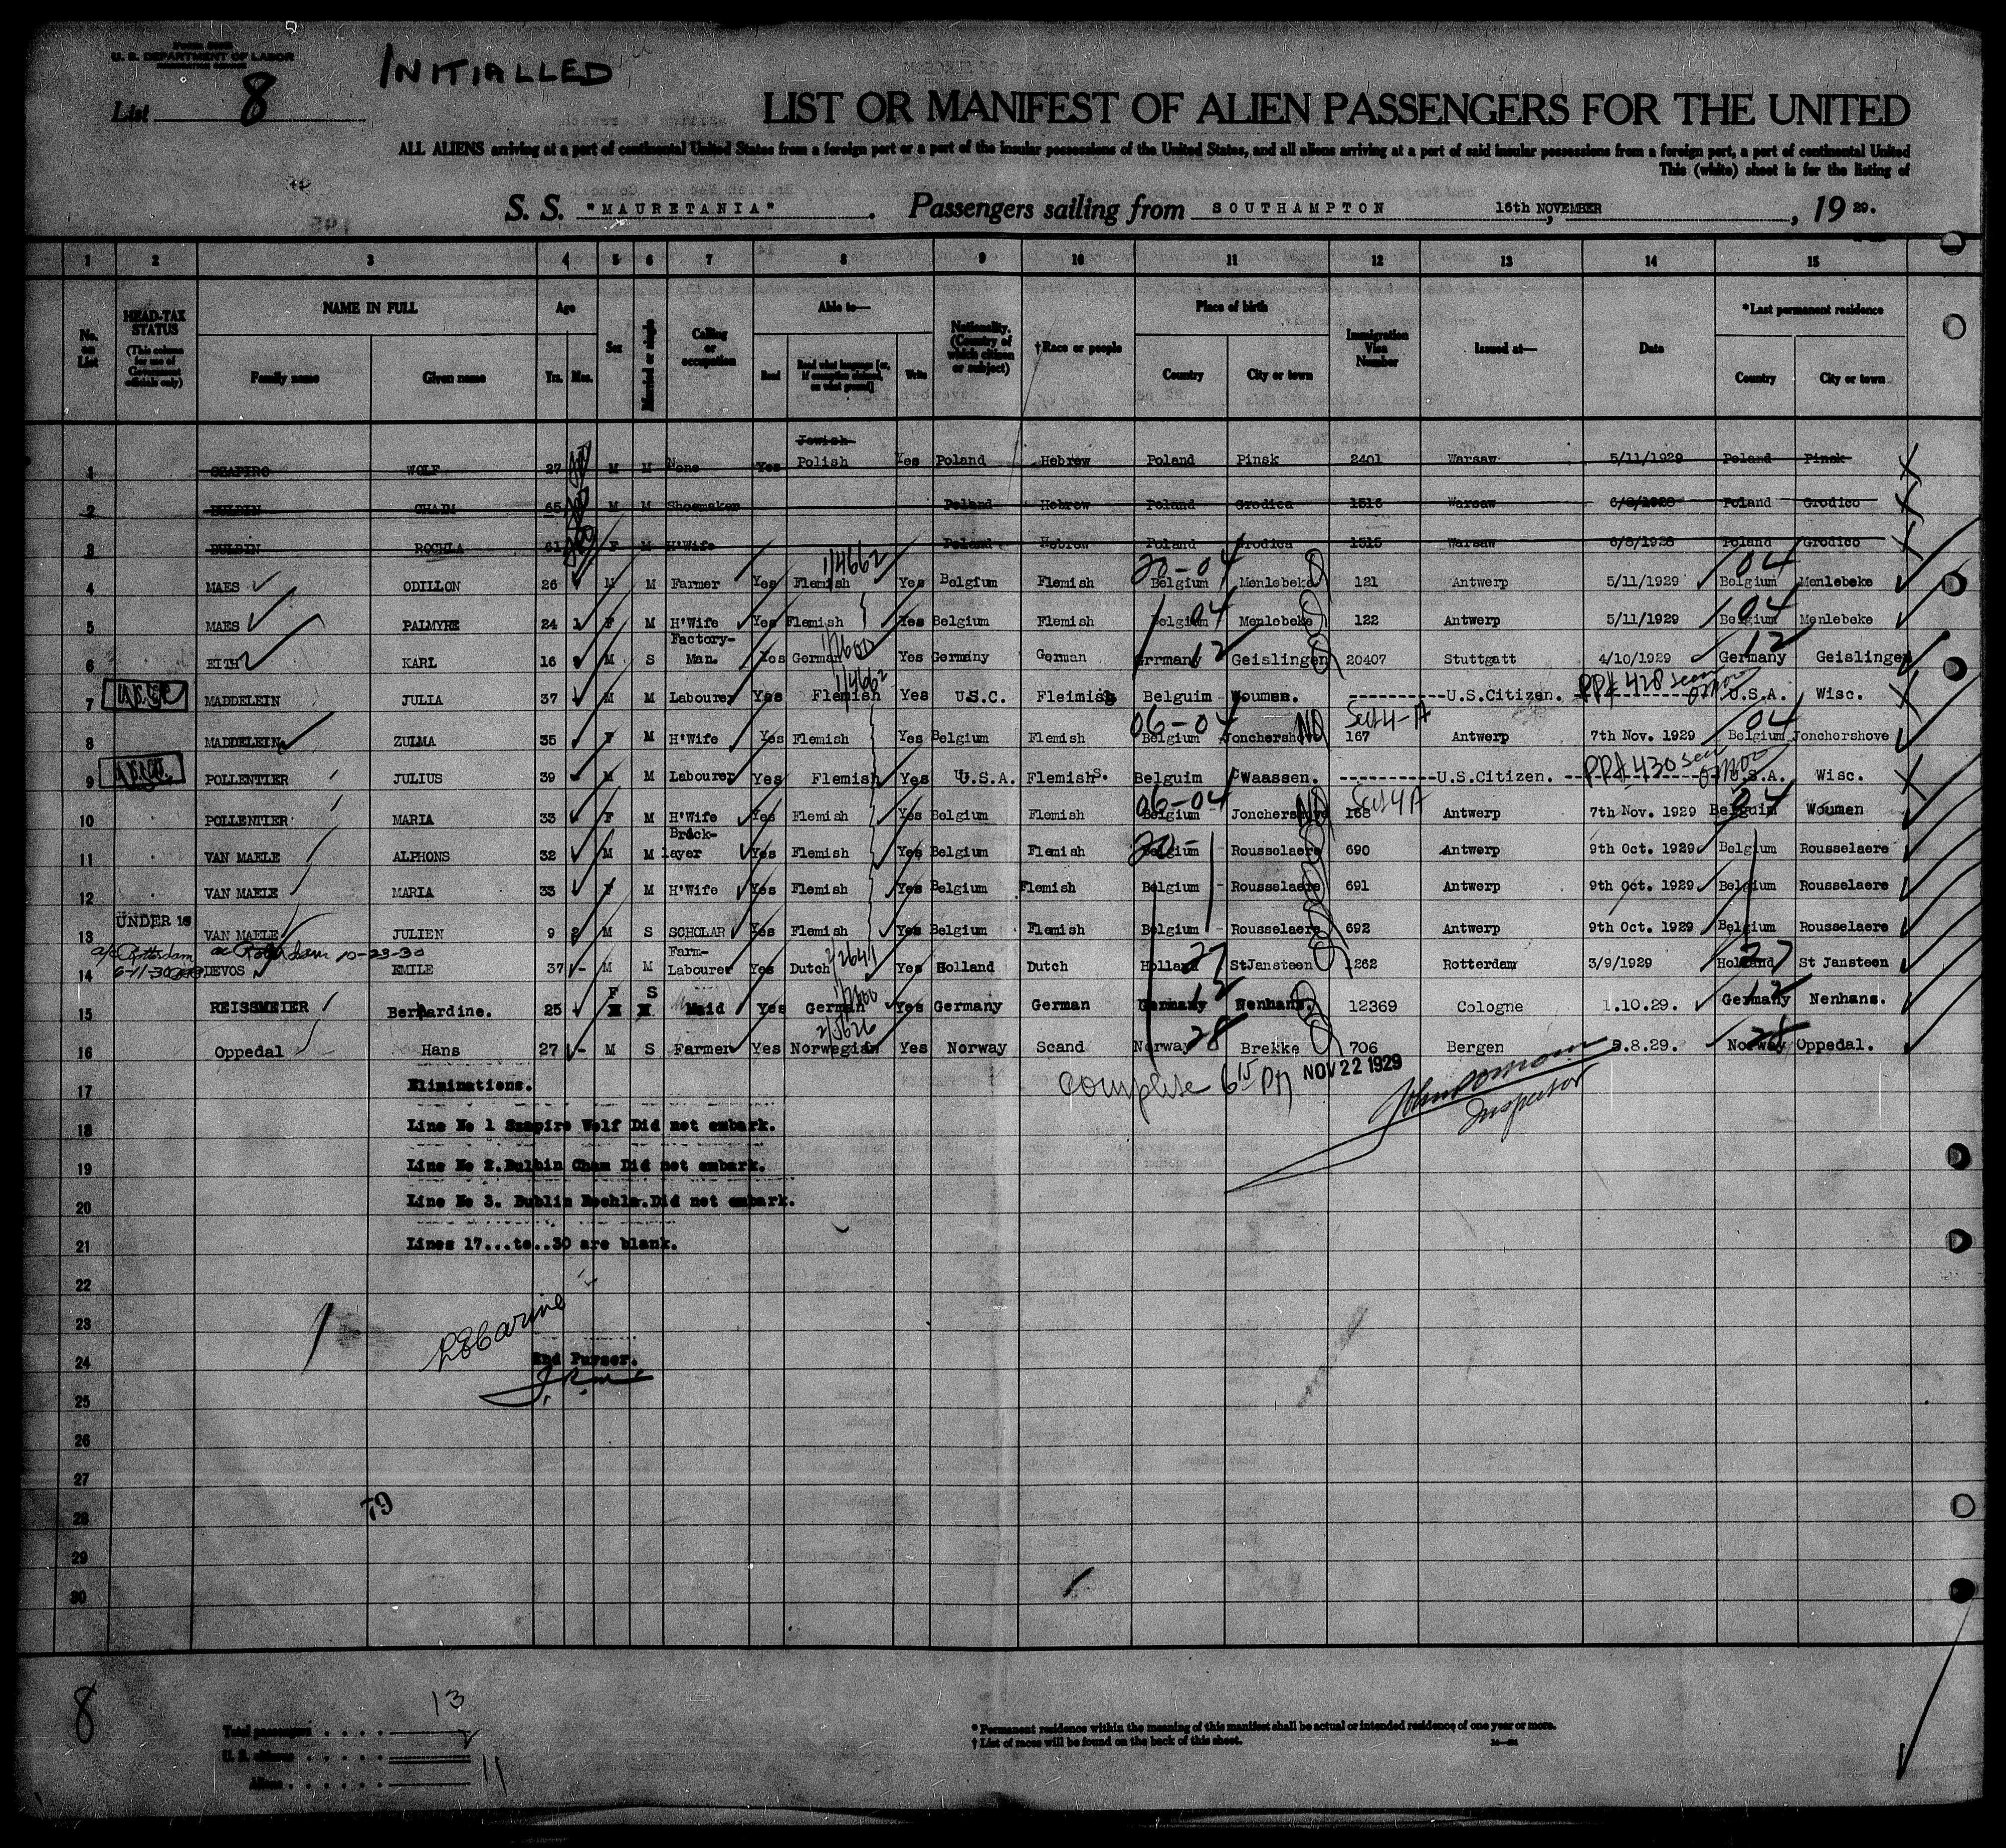 U. S. DEPARTMENT OF LABOR
INITIALLED
List 8
LIST OR MANIFEST OF ALIEN PASSENGERS FOR THE UNITED
ALL ALIENS arriving at a port of continental United States from a foreign port or a port of the insular possessions of the United States, and all aliens arriving at a port of said insular possessions from a foreign port, a port of continental United
This (white) sheet is for the listing of
S. S. "MAURETANIA". Passengers sailing from SOUTHAMPTON 16th NOVEMBER, 19 29.
1 2 3 4 5 6 7 8 9 10 11 12 13 14 15
No. on List
HEAD-TAX STATUS (This column for use of Government officials only)
NAME IN FULL Family name Given name
Age Yrs. Mos.
Sex
Married or single
Calling or occupation
Able to— Read Read what language [or, if exemption claimed, on what ground] Write
Nationality. (Country of which citizen or subject)
†Race or people
Place of birth Country City or town
Immigration Visa Number
Issued at—
Date
*Last permanent residence Country City or town
Jewish
1 SHAPIRO WOLF 27 M M None Yes Polish Yes Poland Hebrew Poland Pinsk 2401 Warsaw 5/11/1929 Poland Pinsk
2 BULBIN CHAIM 65 M M Shoemaker Poland Hebrew Poland Grodica 1516 Warsaw 6/8/1928 Poland Grodico
3 BULBIN ROCHLA 61 F M H'Wife Poland Hebrew Poland Grodica 1515 Warsaw 6/8/1928 Poland Grodico
1/4662 20-04 04
4 MAES ODILLON 26 M M Farmer Yes Flemish Yes Belgium Flemish Belgium Menlebeke 121 Antwerp 5/11/1929 Belgium Menlebeke
04 04
5 MAES PALMYRE 24 1 F M H'Wife Yes Flemish Yes Belgium Flemish Belgium Menlebeke 122 Antwerp 5/11/1929 Belgium Menlebeke
1/2600 12 12
6 EITH KARL 16 M S Factory-Man. Yes German Yes Germany German Grrmany Geislingen 20407 Stuttgatt 4/10/1929 Germany Geislingen
1/4662
7 MADDELEIN JULIA 37 M M Labourer Yes Flemish Yes U.S.C. Fleimish Belguim Woumen. ----------U.S.Citizen. PPA 428 seen U.S.A. Wisc.
06-04 NO Sect 4-A 04
8 MADDELEIN ZULMA 35 F M H'Wife Yes Flemish Yes Belgium Flemish Belgium Jonchershove 167 Antwerp 7th Nov. 1929 Belgium Jonchershove
9 POLLENTIER JULIUS 39 M M Labourer Yes Flemish Yes U.S.A. Flemish. Belguim Waassen. ----------U.S.Citizen. PPA 430 seen U.S.A. Wisc.
06-04 NO Sect 4A 04
10 POLLENTIER MARIA 33 F M H'Wife Yes Flemish Yes Belgium Flemish Belgium Jonchershove 168 Antwerp 7th Nov. 1929 Belguim Woumen
20-
11 VAN MAELE ALPHONS 32 M M Brick-layer Yes Flemish Yes Belgium Flemish Belgium Rousselaere 690 Antwerp 9th Oct. 1929 Belgium Rousselaere
12 VAN MAELE MARIA 33 F M H'Wife Yes Flemish Yes Belgium Flemish Belgium Rousselaere 691 Antwerp 9th Oct. 1929 Belgium Rousselaere
UNDER 16
13 VAN MAELE JULIEN 9 M S SCHOLAR Yes Flemish Yes Belgium Flemish Belgium Rousselaere 692 Antwerp 9th Oct. 1929 Belgium Rousselaere
a/c Rotterdam 10-23-30 2/2641 27 27
14 6-11-30 DEVOS EMILE 37 - M M Farm-Labourer Yes Dutch Yes Holland Dutch Holland StJansteen 1262 Rotterdam 3/9/1929 Holland St Jansteen
F S 1/2600 12 12
15 REISSMEIER Bernardine. 25 Maid Yes German Yes Germany German Germany Nenhans. 12369 Cologne 1.10.29. Germany Nenhans.
2/5626 28 28
16 Oppedal Hans 27 - M S Farmer Yes Norwegian Yes Norway Scand Norway Brekke 706 Bergen 9.8.29. Norway Oppedal.
complete 6 15 PM NOV 22 1929
Inspector
17 Eliminations.
18 Line No 1 Szapiro Wolf Did not embark.
19 Line No 2. Bulbin Cham Did not embark.
20 Line No 3. Bublin Rochla. Did not embark.
21 Lines 17...to..30 are blank.
22
23
24 2nd Purser.
25
26
27
28 79
29
30
8
Total passengers . . . . 13
U. S. citizens . . . . . 2
Aliens . . . . . . 11
* Permanent residence within the meaning of this manifest shall be actual or intended residence of one year or more.
† List of races will be found on the back of this sheet.